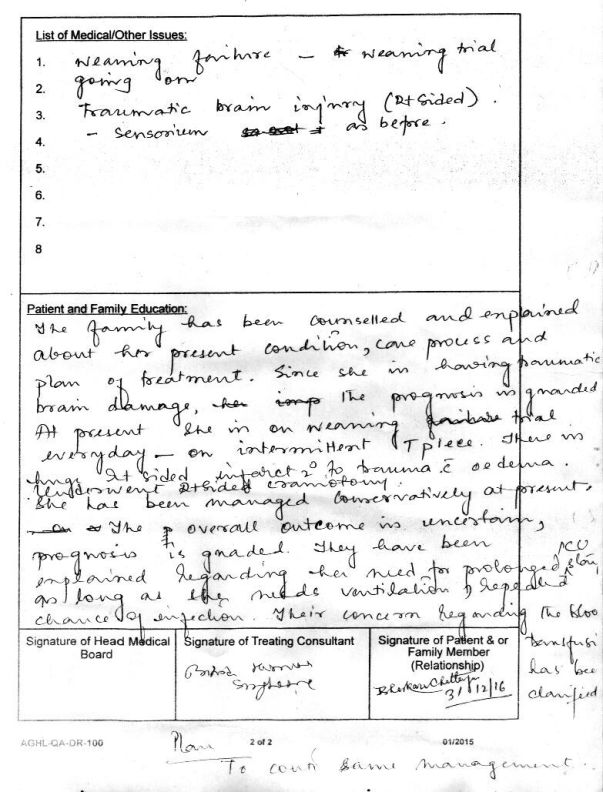 List of Medical/Other Issues:
1. Weaning failure - weaning trial
going on
2.
3. Traumatic brain injury (Rt Sided).
- Sensorium as before.
4.
5.
6.
7.
8
Patient and Family Education:
The family has been counselled and explained
about her present condition, care process and
plan of treatment. Since she is having traumatic
brain damage, the prognosis is guarded
At present she is on weaning trial
everyday - on intermittent T piece. There is
huge Rt sided infarct 2° to trauma c̄ oedema.
Underwent Rt sided craniotomy.
She has been managed conservatively at present.
The overall outcome is uncertain,
prognosis is guaded. They have been
explained regarding her need for prolonged ICU stay,
as long as she needs ventilation, repeated
chance of infection. Their concern regarding the bloo
transfusi
has bee
clarified
Signature of Head Medical
Board
Signature of Treating Consultant
Signature of Patient & or
Family Member
(Relationship)
31/12/16
AGHL-QA-DR-100
2 of 2
01/2015
Plan
To conti same management.